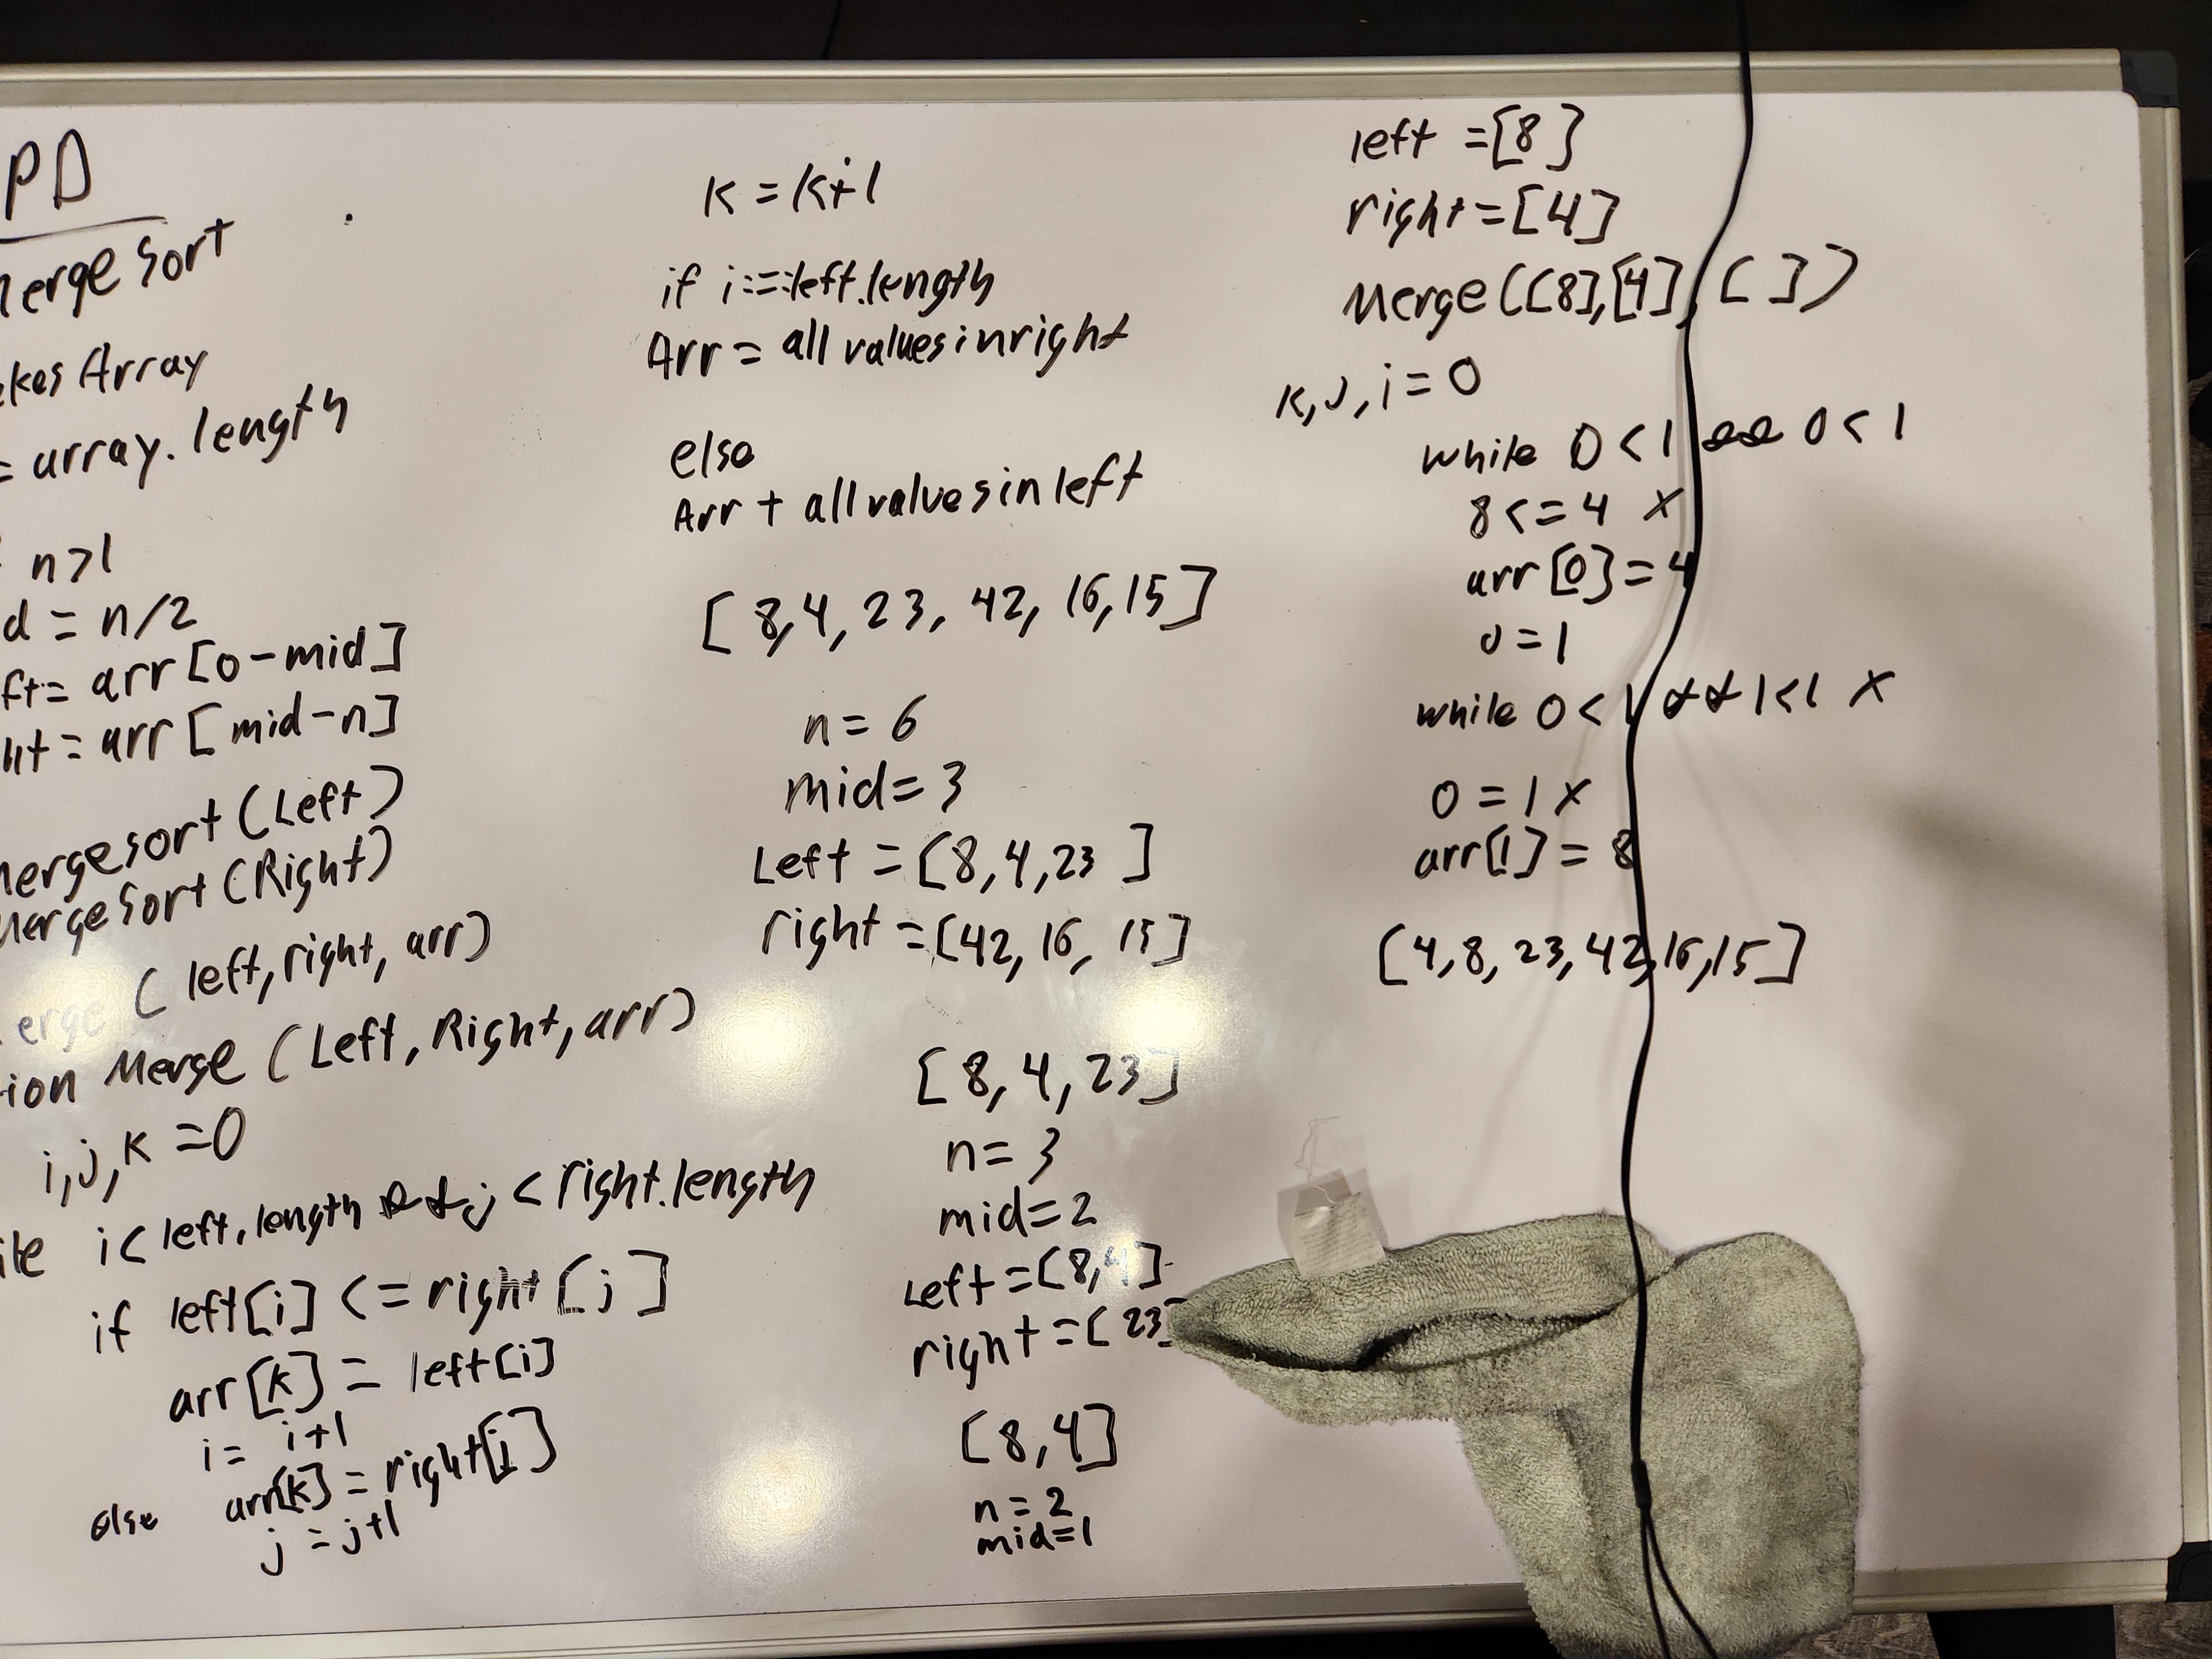 PD
merge sort
kes Array
= array.length
n>1
d = n/2
ft= arr[0-mid]
ht= arr[mid-n]
mergesort(Left)
mergesort(Right)
erge (left,right,arr)
tion Merge (Left, Right, arr)
i,j,k =0
ile i< left.length && j < right.length
if left[i] <= right[j]
arr[k] = left[i]
i= i+1
else arr[k] = right[j]
j = j+1
k = k+1
if i==left.length
Arr = all values in right
else
Arr + all values in left
[8,4,23, 42, 16,15]
n= 6
mid= 3
Left = [8,4,23 ]
right =[42, 16, 15]
[8, 4, 23]
n= 3
mid=2
Left =[8,4]
right =[23]
[8,4]
n = 2
mid=1
left =[8]
right =[4]
Merge([8],[4], [ ])
k,j,i=0
while 0<1 && 0<1
8<=4 x
arr[0]=4
j=1
while 0<1 && 1<1 x
0=1 x
arr[1]= 8
[4,8,23,42,16,15]